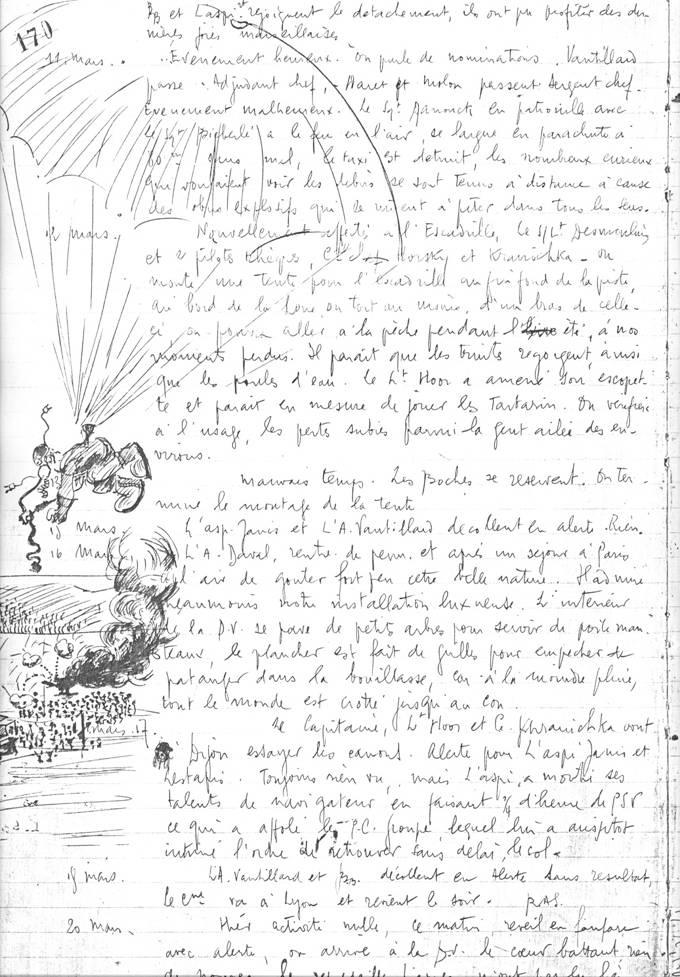 170
et L'aspi rejoignent le detachement, ils ont pu profiter des der-
nières joies marseillaises
11 mars. Evenement heureux. On parle de nominations. Vantillard
passe Adjudant chef, Haret et Molon passent Sergent chef.
Evenement malheureux. Le Sgt Janouch en patrouille avec
le Sgt a le feu en l'air, se largue en parachute à
sans mal, le taxi est detruit, les nombreux curieux
qui voulaient voir les debris se sont tenus à distance à cause
des obus explosifs qui se mirent à péter dans tous les sens.
12 mars. Nouvellement affectés à l'Escadrille, le S/Lt Desmoulins
et 2 pilotes tchèques, et Kranichka - On
monte une tente pour l'escadrille au fin fond de la piste,
au bord de la ou tout au moins, d'un bras de celle-
ci, on pourra aller à la pêche pendant l' été, à nos
moments perdus. Il parait que les truites regorgent, ainsi
que les poules d'eau. Le Lt Hoor a amené son escopet-
te et parait en mesure de jouer les Tartarin. On verifiera
à l'usage, les pertes subies parmi la gent ailée des en-
virons.
Mauvais temps. Les Boches se reservent. On ter-
mine le montage de la tente
15 mars L'asp. Janis et L'A. Vantillard decollent en alerte. Rien.
16 Mars L'A. Daval, rentre de perm. et après un sejour à Paris
a l'air de gouter fort peu cette belle nature. Il admire
neanmoins notre installation luxueuse. L'interieur
de la D.V. se pare de petits arbres pour servir de porte man-
teaux, le plancher est fait de grilles pour empecher de
patauger dans la bouillasse, car à la moindre pluie,
tout le monde est crotté jusqu'au con.
mars 17 Le Capitaine, Lt Hoor et C. Khranichka vont
à Dijon essayer les canons. Alerte pour L'aspi Janis et
Lestapis. Toujours rien vu, mais L'aspi, a montré ses
talents de navigateur en faisant 3/4 d'heure de PSV
ce qui a affolé le P.C. groupe lequel lui a aussitot
intimé l'ordre de retrouver sans delai, le sol.
18 mars. L'A. Vantillard et decollent en alerte sans resultat,
le va à Lyon et revient le soir. RAS.
20 mars. Hier activité nulle, ce matin, reveil en fanfare
avec alerte, on arrive à la D.V. le cœur battant